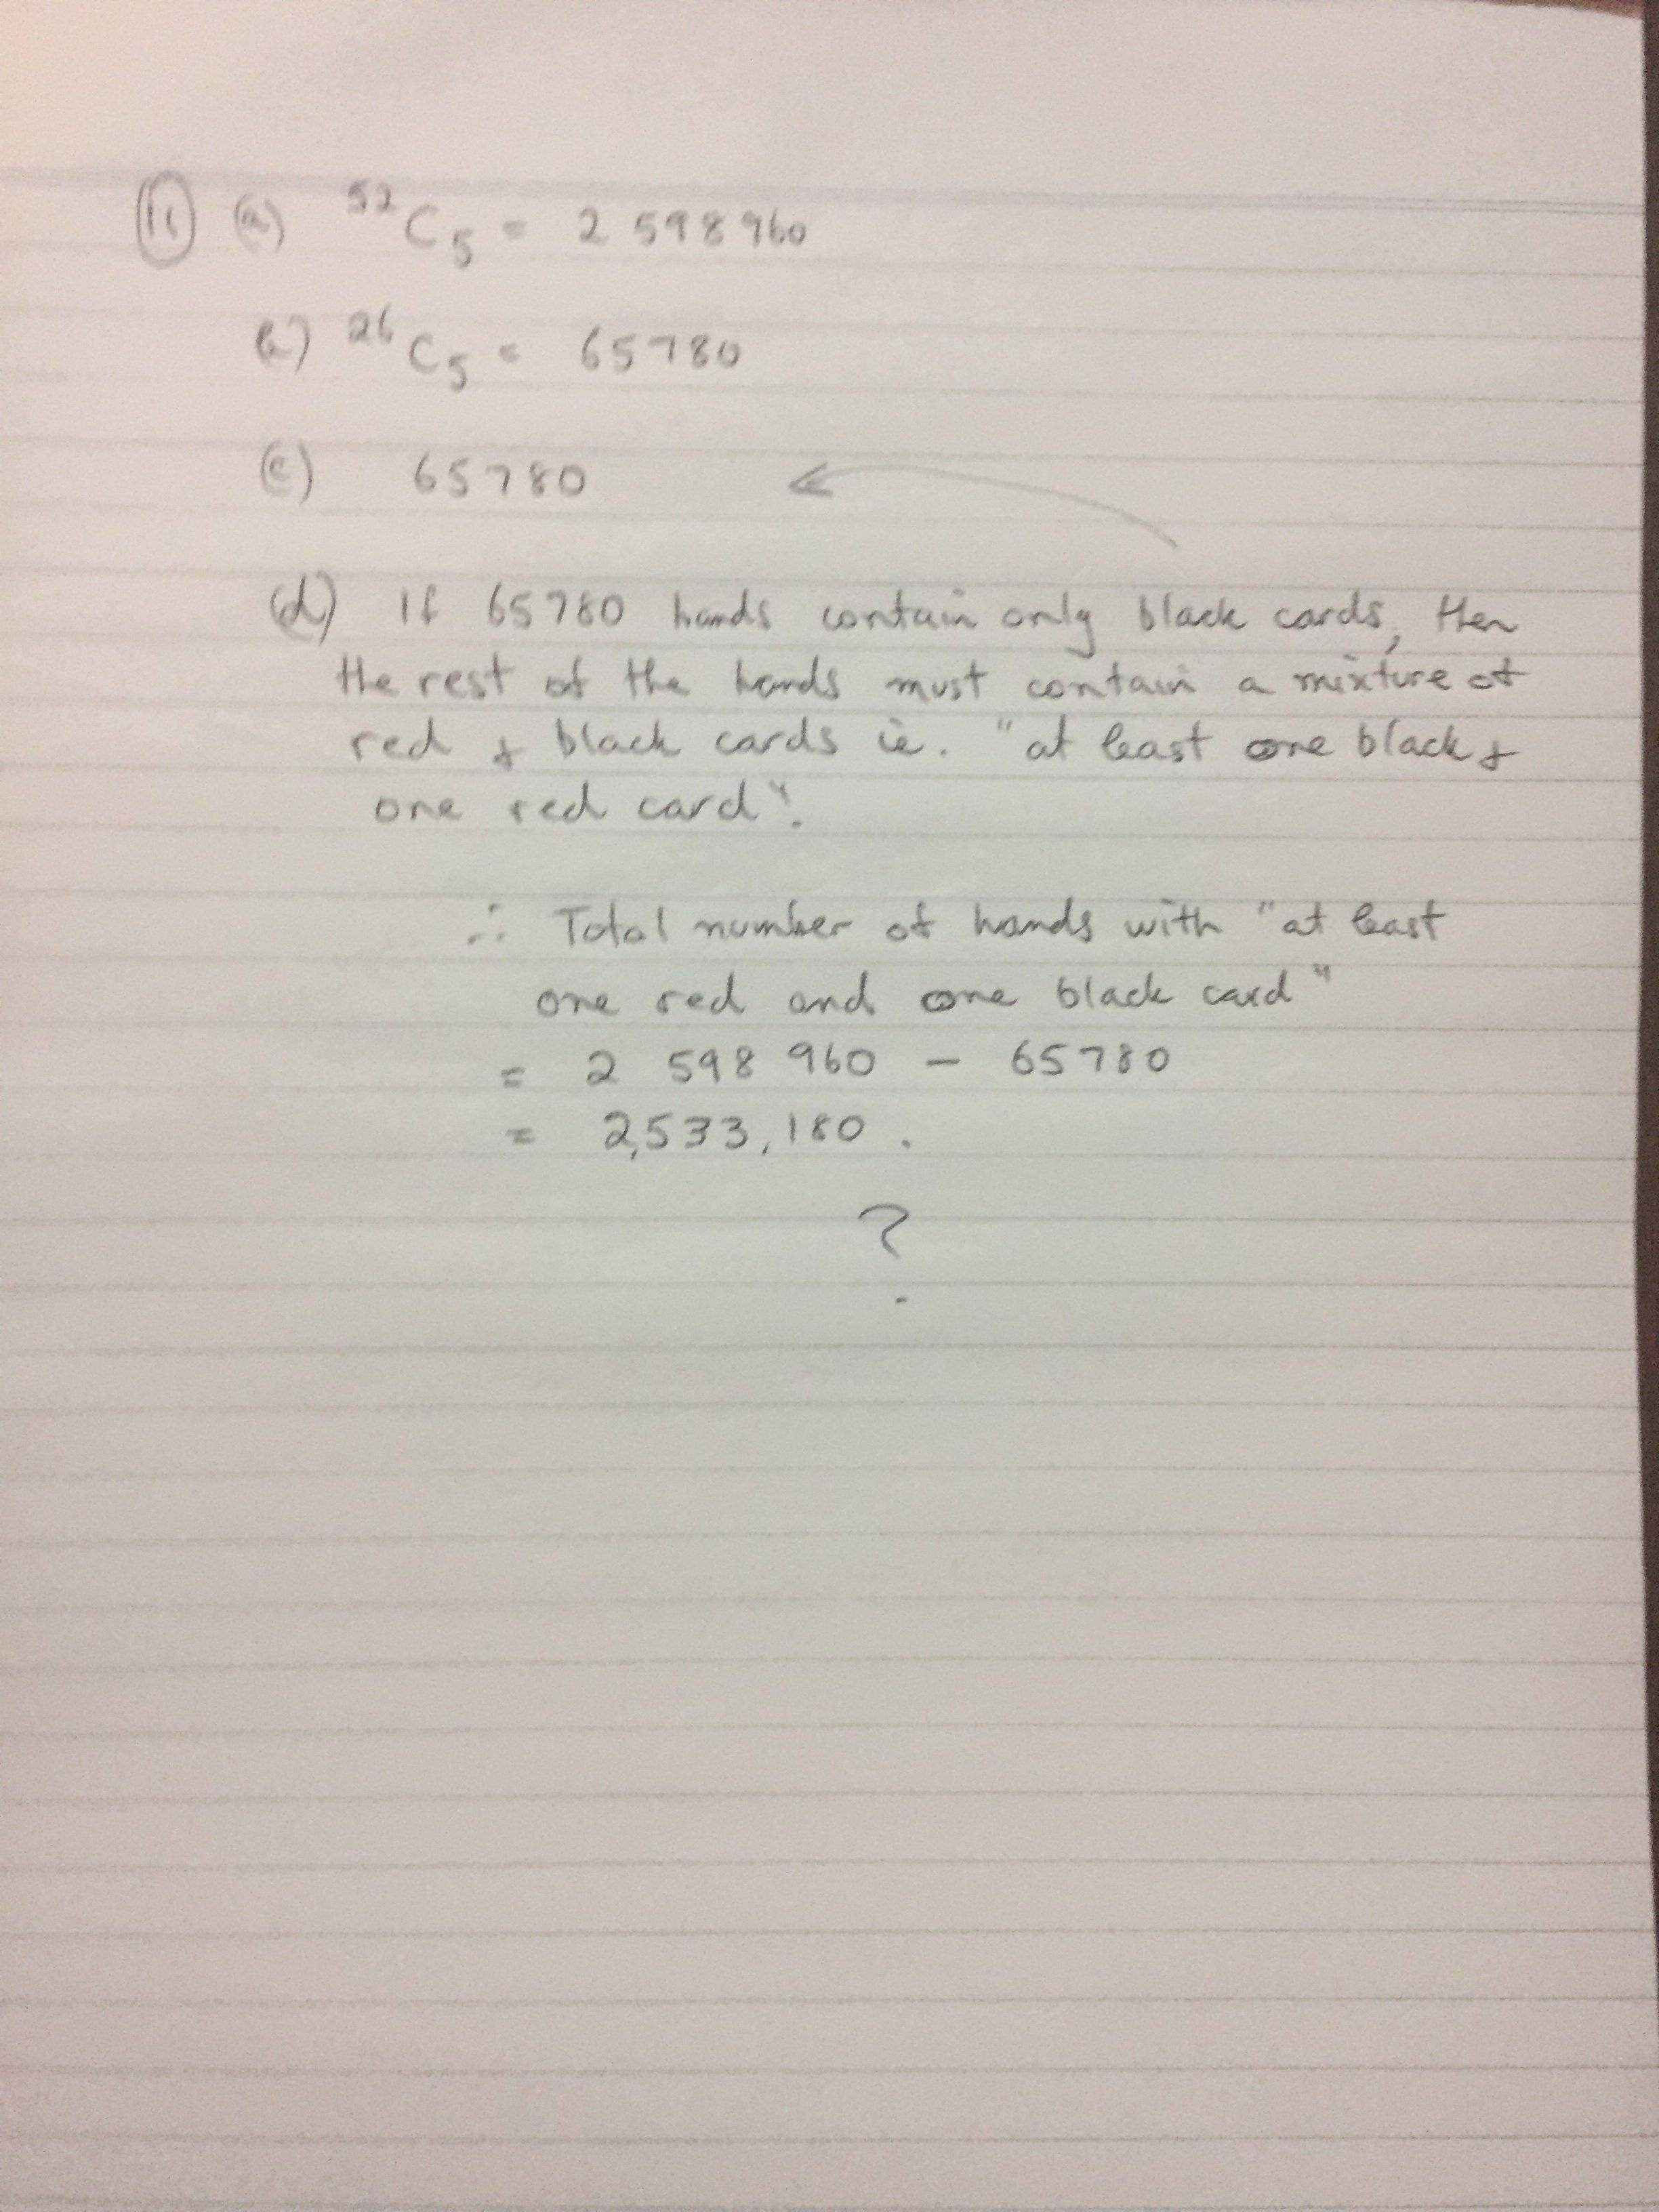 11 (a) ⁵²C₅ = 2 598 960
(b) ²⁶C₅ = 65780
(c) 65780
(d) If 65780 hands contain only black cards, then
the rest of the hands must contain a mixture of
red & black cards ie. "at least one black &
one red card".
∴ Total number of hands with "at least
one red and one black card"
= 2 598 960 - 65780
= 2,533,180.
?